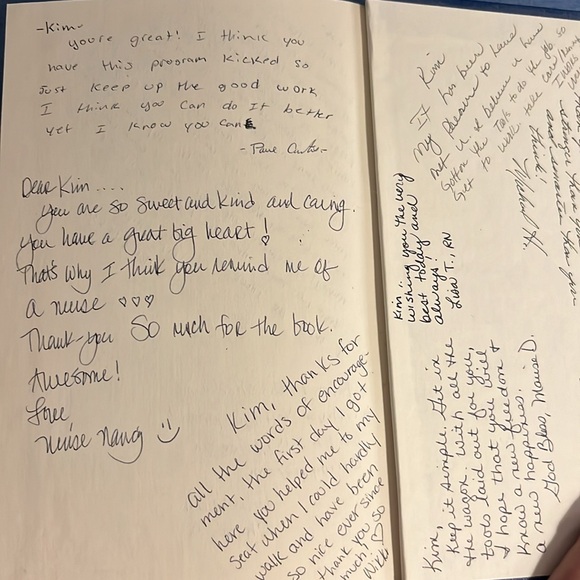 -Kim-
you're great! I think you
have this program kicked so
Just keep up the good work
I think you can do it better
yet I know you can
- Paul
Dear Kim ....
You are so sweet and kind and caring.
You have a great big heart! ♡
That's why I think you remind me of
a nurse ♡♡♡
Thank-you SO much for the book.
Awesome!
Love
Nurse Nancy :)
Kim, thanks for
all the words of encourage-
ment, the first day I got
here you helped me to my
seat when I could hardly
walk and have been
so nice ever since
thank you so
much! ♡
Nikki
Kim
My It has been
pleasure to have
met u. I believe u have
gotten the
get to work, take
think!
Kim:
wishing you the very
best today and
always
Lisa T., RN
Kim,
Keep it simple. Get in
the wagon with all the
tools laid out for you,
I hope that you will
know a new freedom &
a new happiness.
God Bless, Marise D.